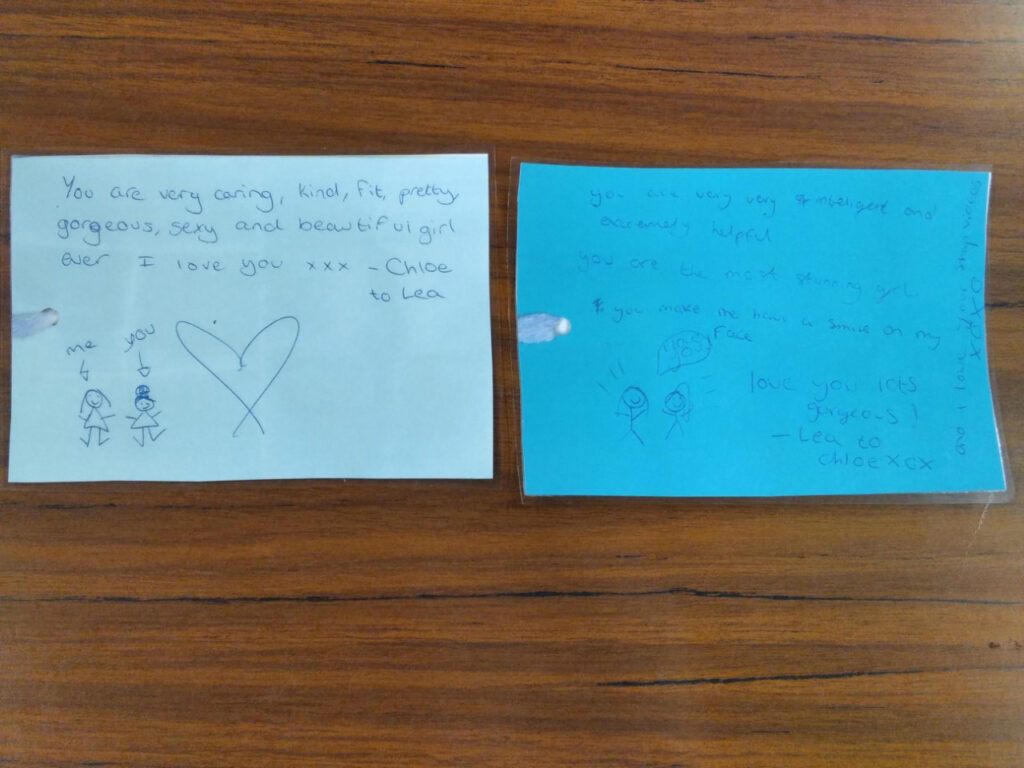 You are very caring, kind, fit, pretty,
gorgeous, sexy and beautiful girl
ever I love you xxx - Chloe
to Lea
me
you
you are very very inteligent and
extremely helpful
you are the most stunning girl
you make me have a smile on my
face
love you lots
gorgeous!
- Lea to
Chloe XOX
and I love your